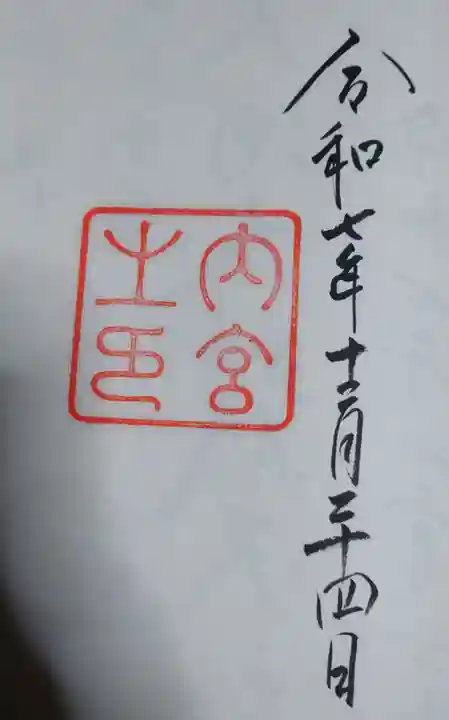 令和七年十二月二十四日
内宮
之印